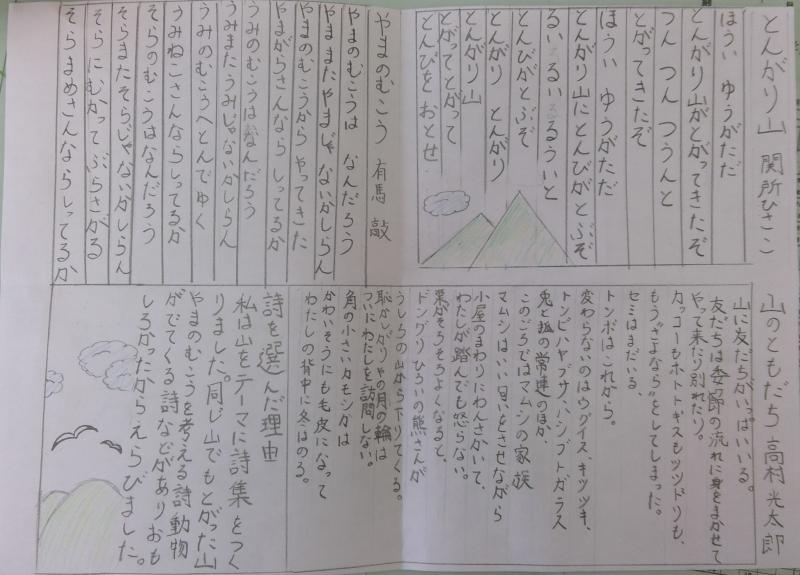 とんがり山 関所ひさこ
ほうい ゆうがただ
とんがり山がとがってきたぞ
つん つん つうんと
とがってきたぞ
ほうい ゆうがただ
とんがり山にとんびがとぶぞ
るい るい るういと
とんびがとぶぞ
とんがり とんがり
とんがり山
とがってとがって
とんびをおとせ
やまのむこう 有馬 敲
やまのむこうは なんだろう
やままたやまじゃないかしらん
やまのむこうから やってきた
やまがらさんなら しってるか
うみのむこうはなんだろう
うみまたうみじゃないかしらん
うみのむこうへとんでゆく
うみねこさんならしってるか
そらのむこうはなんだろう
そらまたそらじゃないかしらん
そらにむかって ぶらさがる
そらまめさんならしってるか
山のともだち 高村光太郎
山に友だちがいっぱいいる。
友だちは季節の流れに身をまかせて
やって来たり別れたり。
カッコーもホトトギスもツツドリも、
もう“さよなら”をしてしまった。
セミはまだいる、
トンボはこれから。
変わらないのはウグイス、キツツキ、
トンビ、ハヤブサ、ハシブトガラス
兎と狐の常連のほか、
このごろではマムシの家族
マムシはいい匂いをさせながら
小屋のまわりにわんさかいて、
わたしが踏んでも怒らない。
栗がそろそろよくなると、
ドングリひろいの熊さんが
うしろの山から下りてくる。
恥かしがりやの月の輪は
ついにわたしを訪問しない。
角の小さいカモシカは
かわいそうにも毛皮になって
わたしの背中に冬はのる。
詩を選んだ理由
私は山をテーマに詩集をつく
りました。同じ山でもとがった山
やまのむこうを考える詩動物
がでてくる詩などがあり おも
しろかったからえらびました。